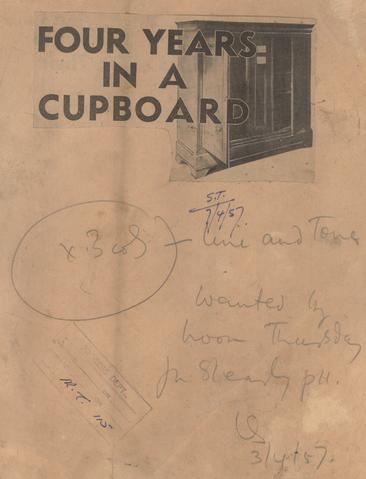 FOUR YEARS
IN A
CUPBOARD
S.T.
7/4/57
x 3 cols – line and Tone
wanted by
noon Thursday
for Steady pH.
3/4/57.